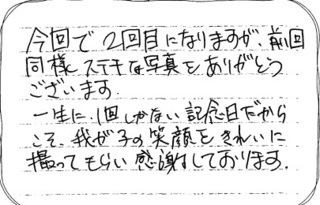 今回で2回目になりますが、前回
同様ステキな写真をありがとう
ございます.
一生に1回しかない記念日だから
こそ、我が子の笑顔をきれいに
撮ってもらい感謝しております.